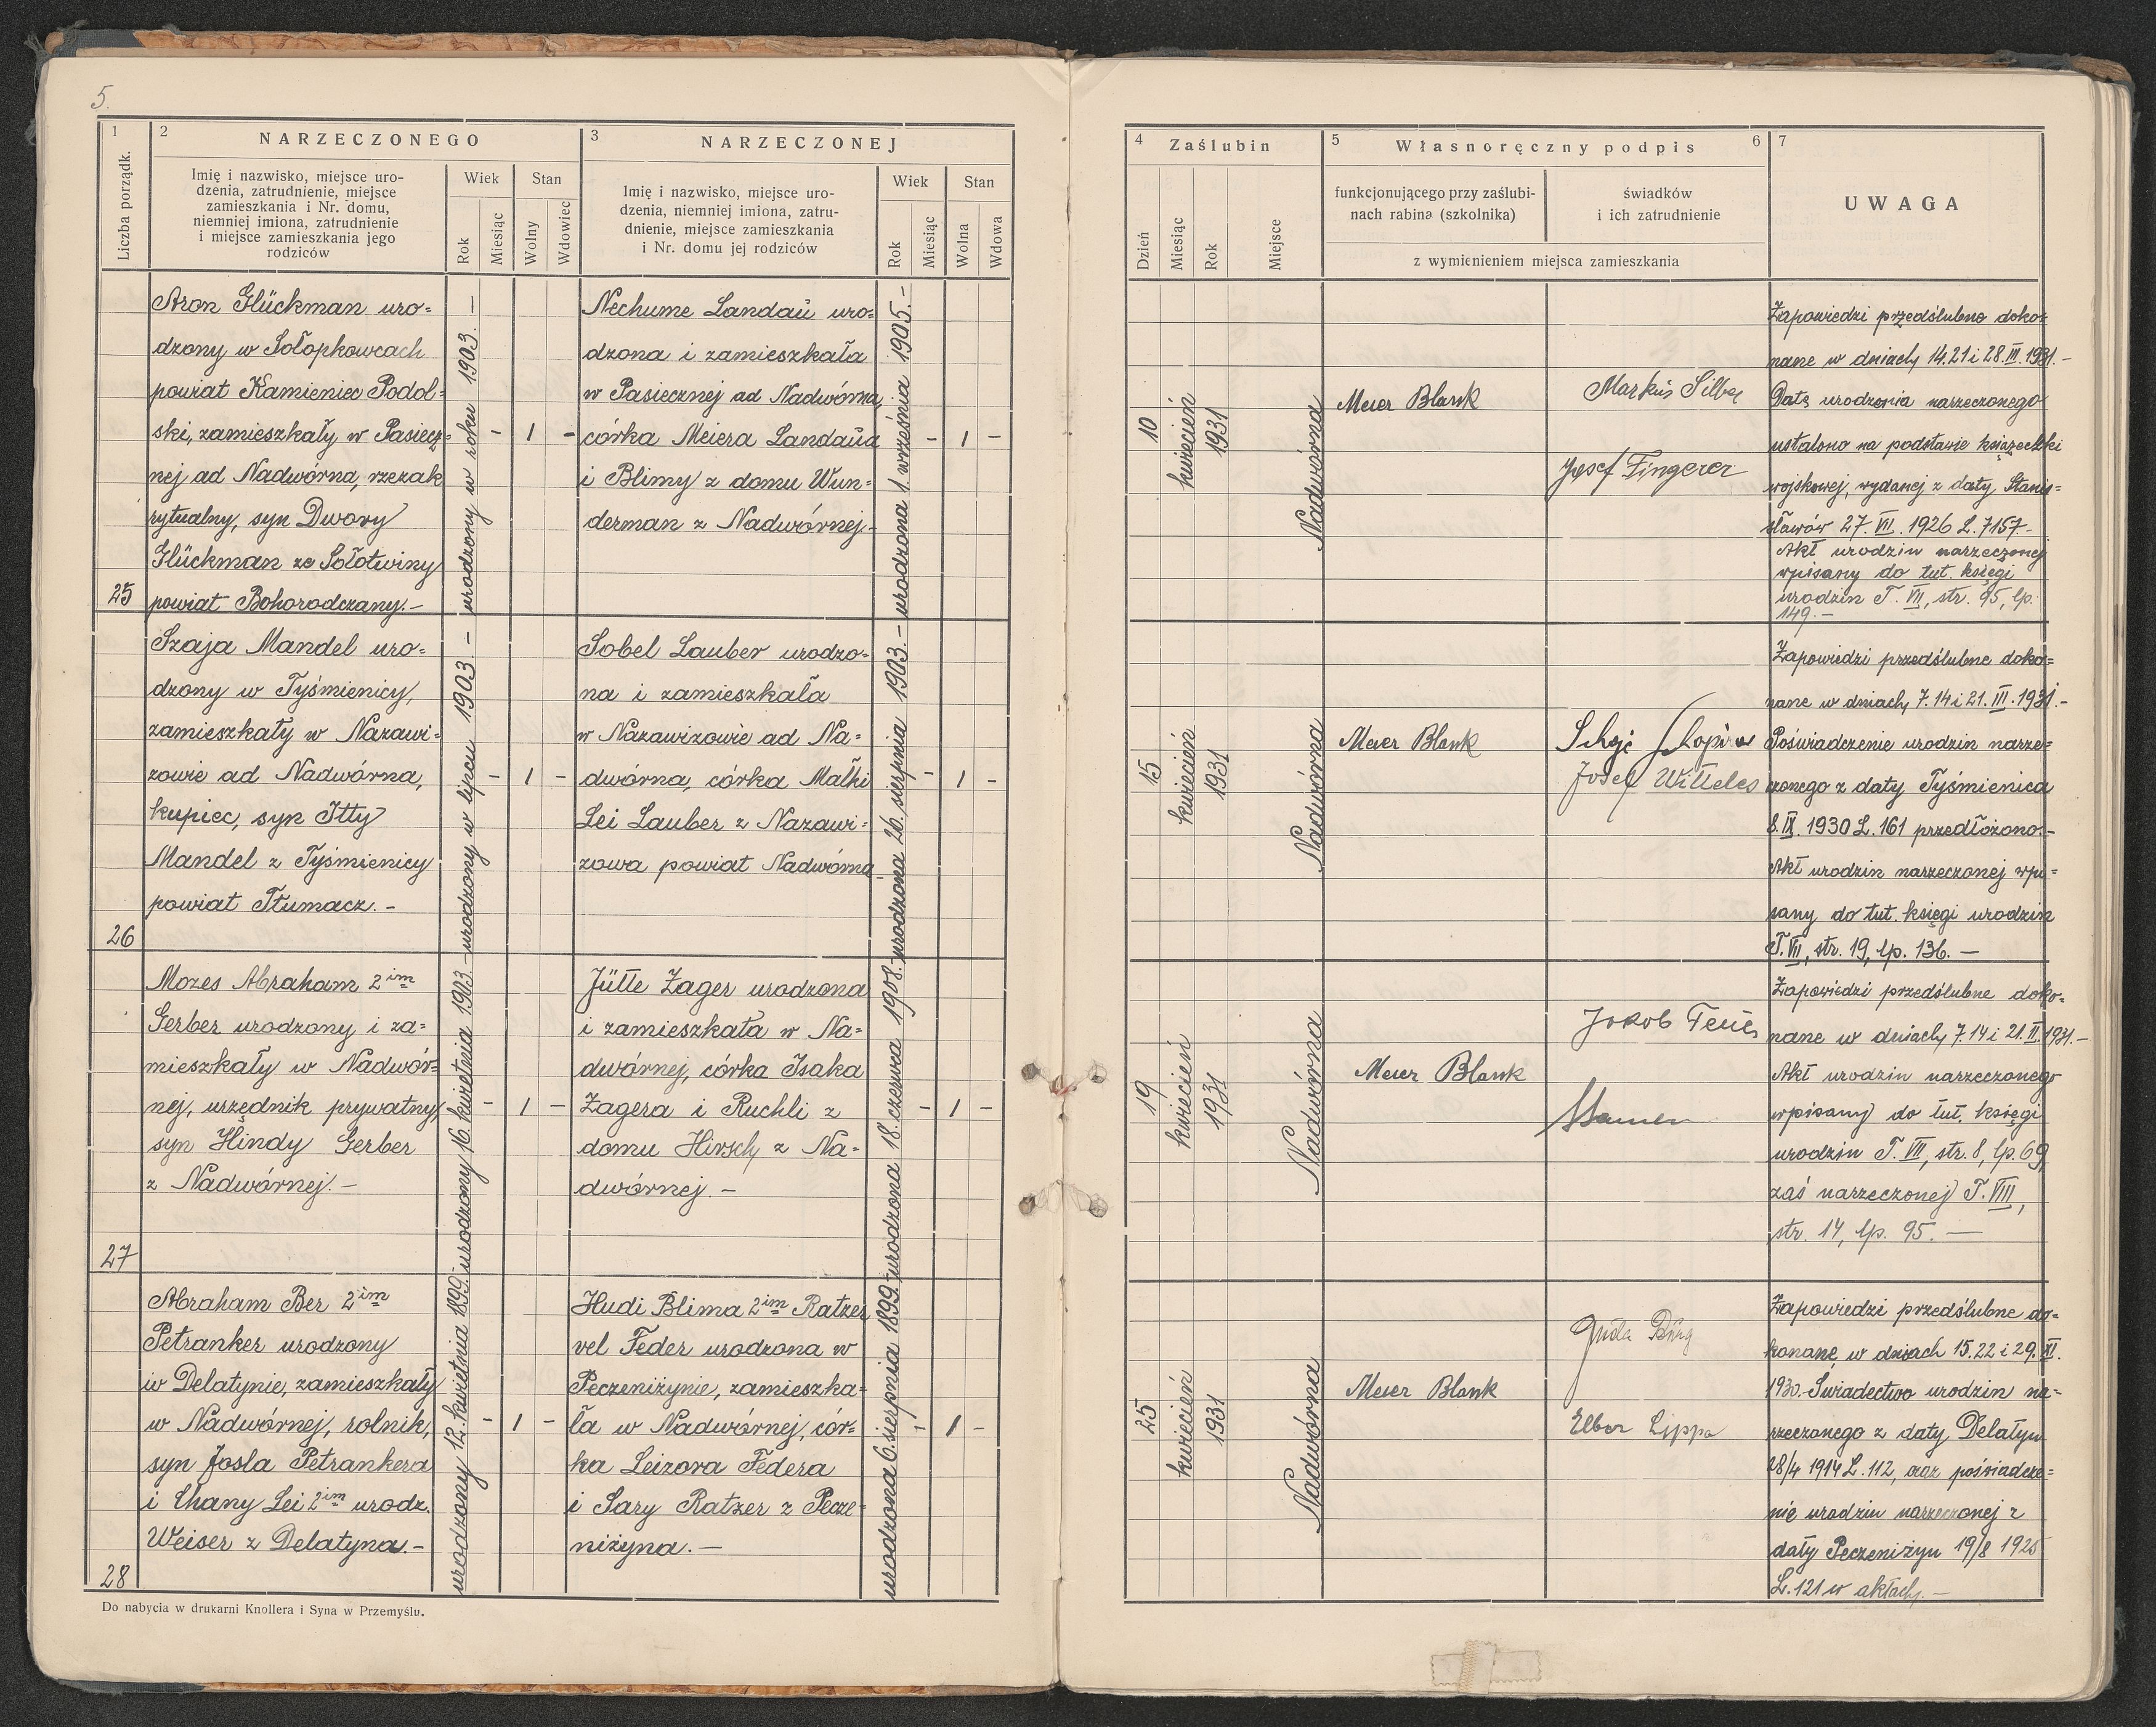 5.
1
Liczba porządk.
2
NARZECZONEGO
Imię i nazwisko, miejsce uro-
dzenia, zatrudnienie, miejsce
zamieszkania i Nr. domu,
niemniej imiona, zatrudnienie
i miejsce zamieszkania jego
rodziców
Wiek
Rok
Miesiąc
Stan
Wolny
Wdowiec
3
NARZECZONEJ
Imię i nazwisko, miejsce uro-
dzenia, niemniej imiona, zatru-
dnienie, miejsce zamieszkania
i Nr. domu jej rodziców
Wiek
Rok
Miesiąc
Stan
Wolna
Wdowa
4
Zaślubin
Dzień
Miesiąc
Rok
Miejsce
5
Własnoręczny podpis
6
funkcjonującego przy zaślubi-
nach rabina (szkolnika)
świadków
i ich zatrudnienie
z wymienieniem miejsca zamieszkania
7
UWAGA
25
Aron Glückman uro=
dzony w Sołopkowcach
powiat Kamieniec Podol=
ski, zamieszkały w Pasiecz=
nej ad Nadwórna, rzezak
rytualny, syn Dwory
Glückman ze Sołotwiny
powiat Bohorodczany.-
urodzony w roku 1903. -
- 1 -
Nechume Landau uro=
dzona i zamieszkała
w Pasiecznej ad Nadwórna,
córka Meiera Landaua
i Blimy z domu Wun=
derman z Nadwórnej.-
urodzona 1. września 1905.-
- 1 -
10
kwiecień
1931
Nadwórna
Meier Blank
Markus Silber
Josef Fingerer
Zapowiedzi przedślubne doko=
nane w dniach 14.21 i 28.III.1931.-
Datę urodzenia narzeczonego
ustalono na podstawie książeczki
wojskowej, wydanej z daty Stanis=
ławów 27.VII.1926 L.7157.-
Akt urodzin narzeczonej
wpisany do tut. księgi
urodzin T. VII, str. 95, lp.
149.-
26
Szaja Mandel uro=
dzony w Tyśmienicy,
zamieszkały w Nazawi=
zowie ad Nadwórna,
kupiec, syn Itty
Mandel z Tyśmienicy
powiat Tłumacz.-
urodzony w lipcu 1903.-
- 1 -
Sobel Lauber urodzo=
na i zamieszkała
w Nazawizowie ad Na=
dwórna, córka Małki
Lei Lauber z Nazawi=
zowa powiat Nadwórna
urodzona 26. sierpnia 1903.-
- 1 -
15
kwiecień
1931
Nadwórna
Meier Blank
Josef Witteles
Zapowiedzi przedślubne doko=
nane w dniach 7.14 i 21.III.1931.-
Poświadczenie urodzin narze=
czonego z daty Tyśmienica
8.IX.1930 L.161 przedłożono.-
Akt urodzin narzeczonej wpi=
sany do tut. księgi urodzin
T.VII, str. 19, lp. 136.-
27
Mozes Abraham 2im
Gerber urodzony i za=
mieszkały w Nadwór=
nej, urzędnik prywatny,
syn Hindy Gerber
z Nadwórnej.-
urodzony 16. kwietnia 1903.-
- 1 -
Jütte Zager urodzona
i zamieszkała w Na=
dwórnej, córka Isaka
Zagera i Ruchli z
domu Hirsch z Na=
dwórnej.-
urodzona 18. czerwca 1908.-
- 1 -
19
kwiecień
1931
Nadwórna
Meier Blank
Jakob
Zapowiedzi przedślubne doko=
nane w dniach 7.14 i 21.II.1931.-
Akt urodzin narzeczonego
wpisany do tut. księgi
urodzin T. VII, str. 8, lp. 69
zaś narzeczonej T. VIII,
str. 14, lp. 95.-
28
Abraham Ber 2im
Petranker urodzony
w Delatynie, zamieszkały
w Nadwórnej, rolnik,
syn Josla Petrankera
i Chany Lei 2im urodz.
Weiser z Delatyna.-
urodzony 12. kwietnia 1899.
- 1 -
Hudi Blima 2im Ratzer
vel Feder urodzona w
Peczeniżynie, zamieszka=
ła w Nadwórnej, cór=
ka Leizora Federa
i Sary Ratzer z Pecze=
niżyna.-
urodzona 6. sierpnia 1899.
- 1 -
25
kwiecień
1931
Nadwórna
Meier Blank
Elber Lippa
Zapowiedzi przedślubne do=
konane w dniach 15.22 i 29.XI.
1930.- Świadectwo urodzin na=
rzeczonego z daty Delatyn
28/4 1914 L.112, oraz poświadcze=
nie urodzin narzeczonej z
daty Peczeniżyn 19/8 1925
L.121 w aktach.-
Do nabycia w drukarni Knollera i Syna w Przemyślu.